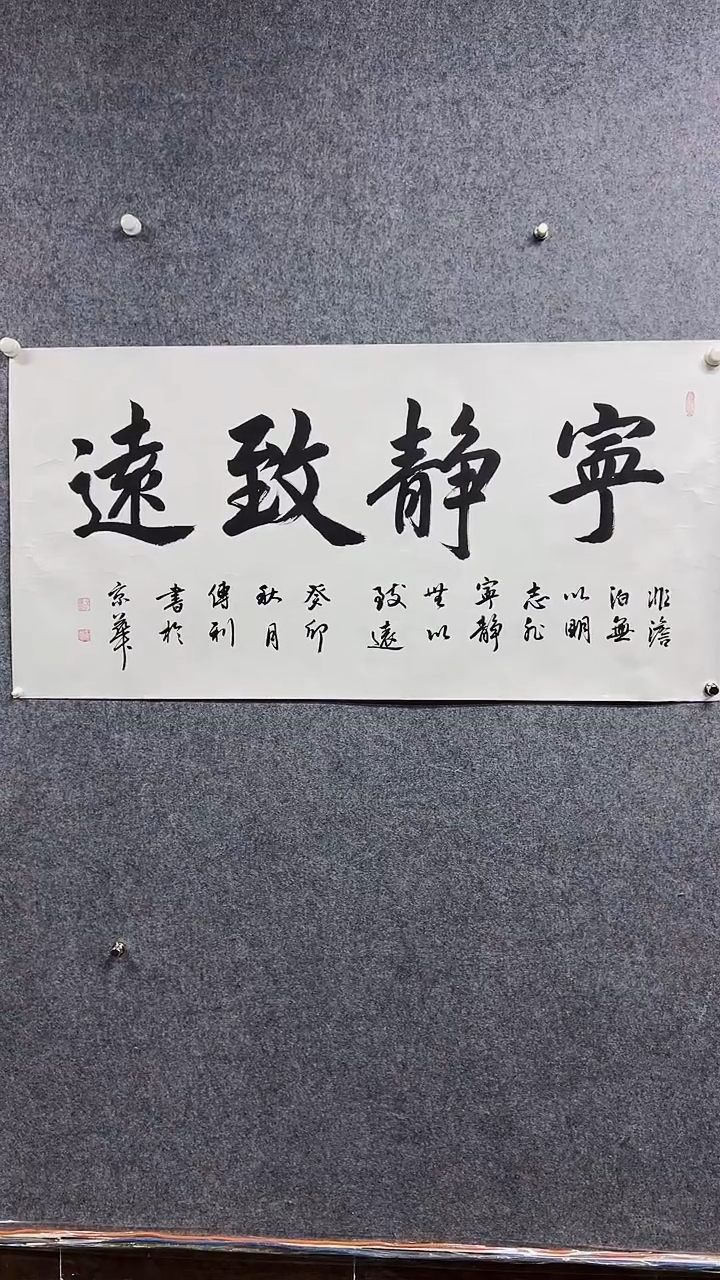 寧静致遠
非澹
泊無
以明
志非
寧静
無以
致遠
癸卯
秋月
傳利
書於
京華